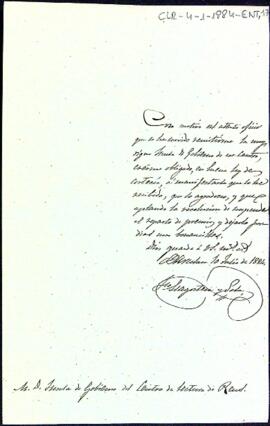 CLR-4-1-1884-ENT,17
Con motivo del atento oficio
que se ha servido remitirme la muy
digna Junta de Gobierno de ese Centro,
creome obligado, en buena ley de
cortesia, a manifestarle que lo he
recibido, que lo agradezco, y que
aplaudo la resolucion de suspender
el reparto de premios, y dejarlo para
dias mas bonancibles.
Dios guarde á Vds. m.s a.s
Barcelona 10 Julio de 1884.
M. D. Junta de Gobierno del Centro de Lectura de Reus.